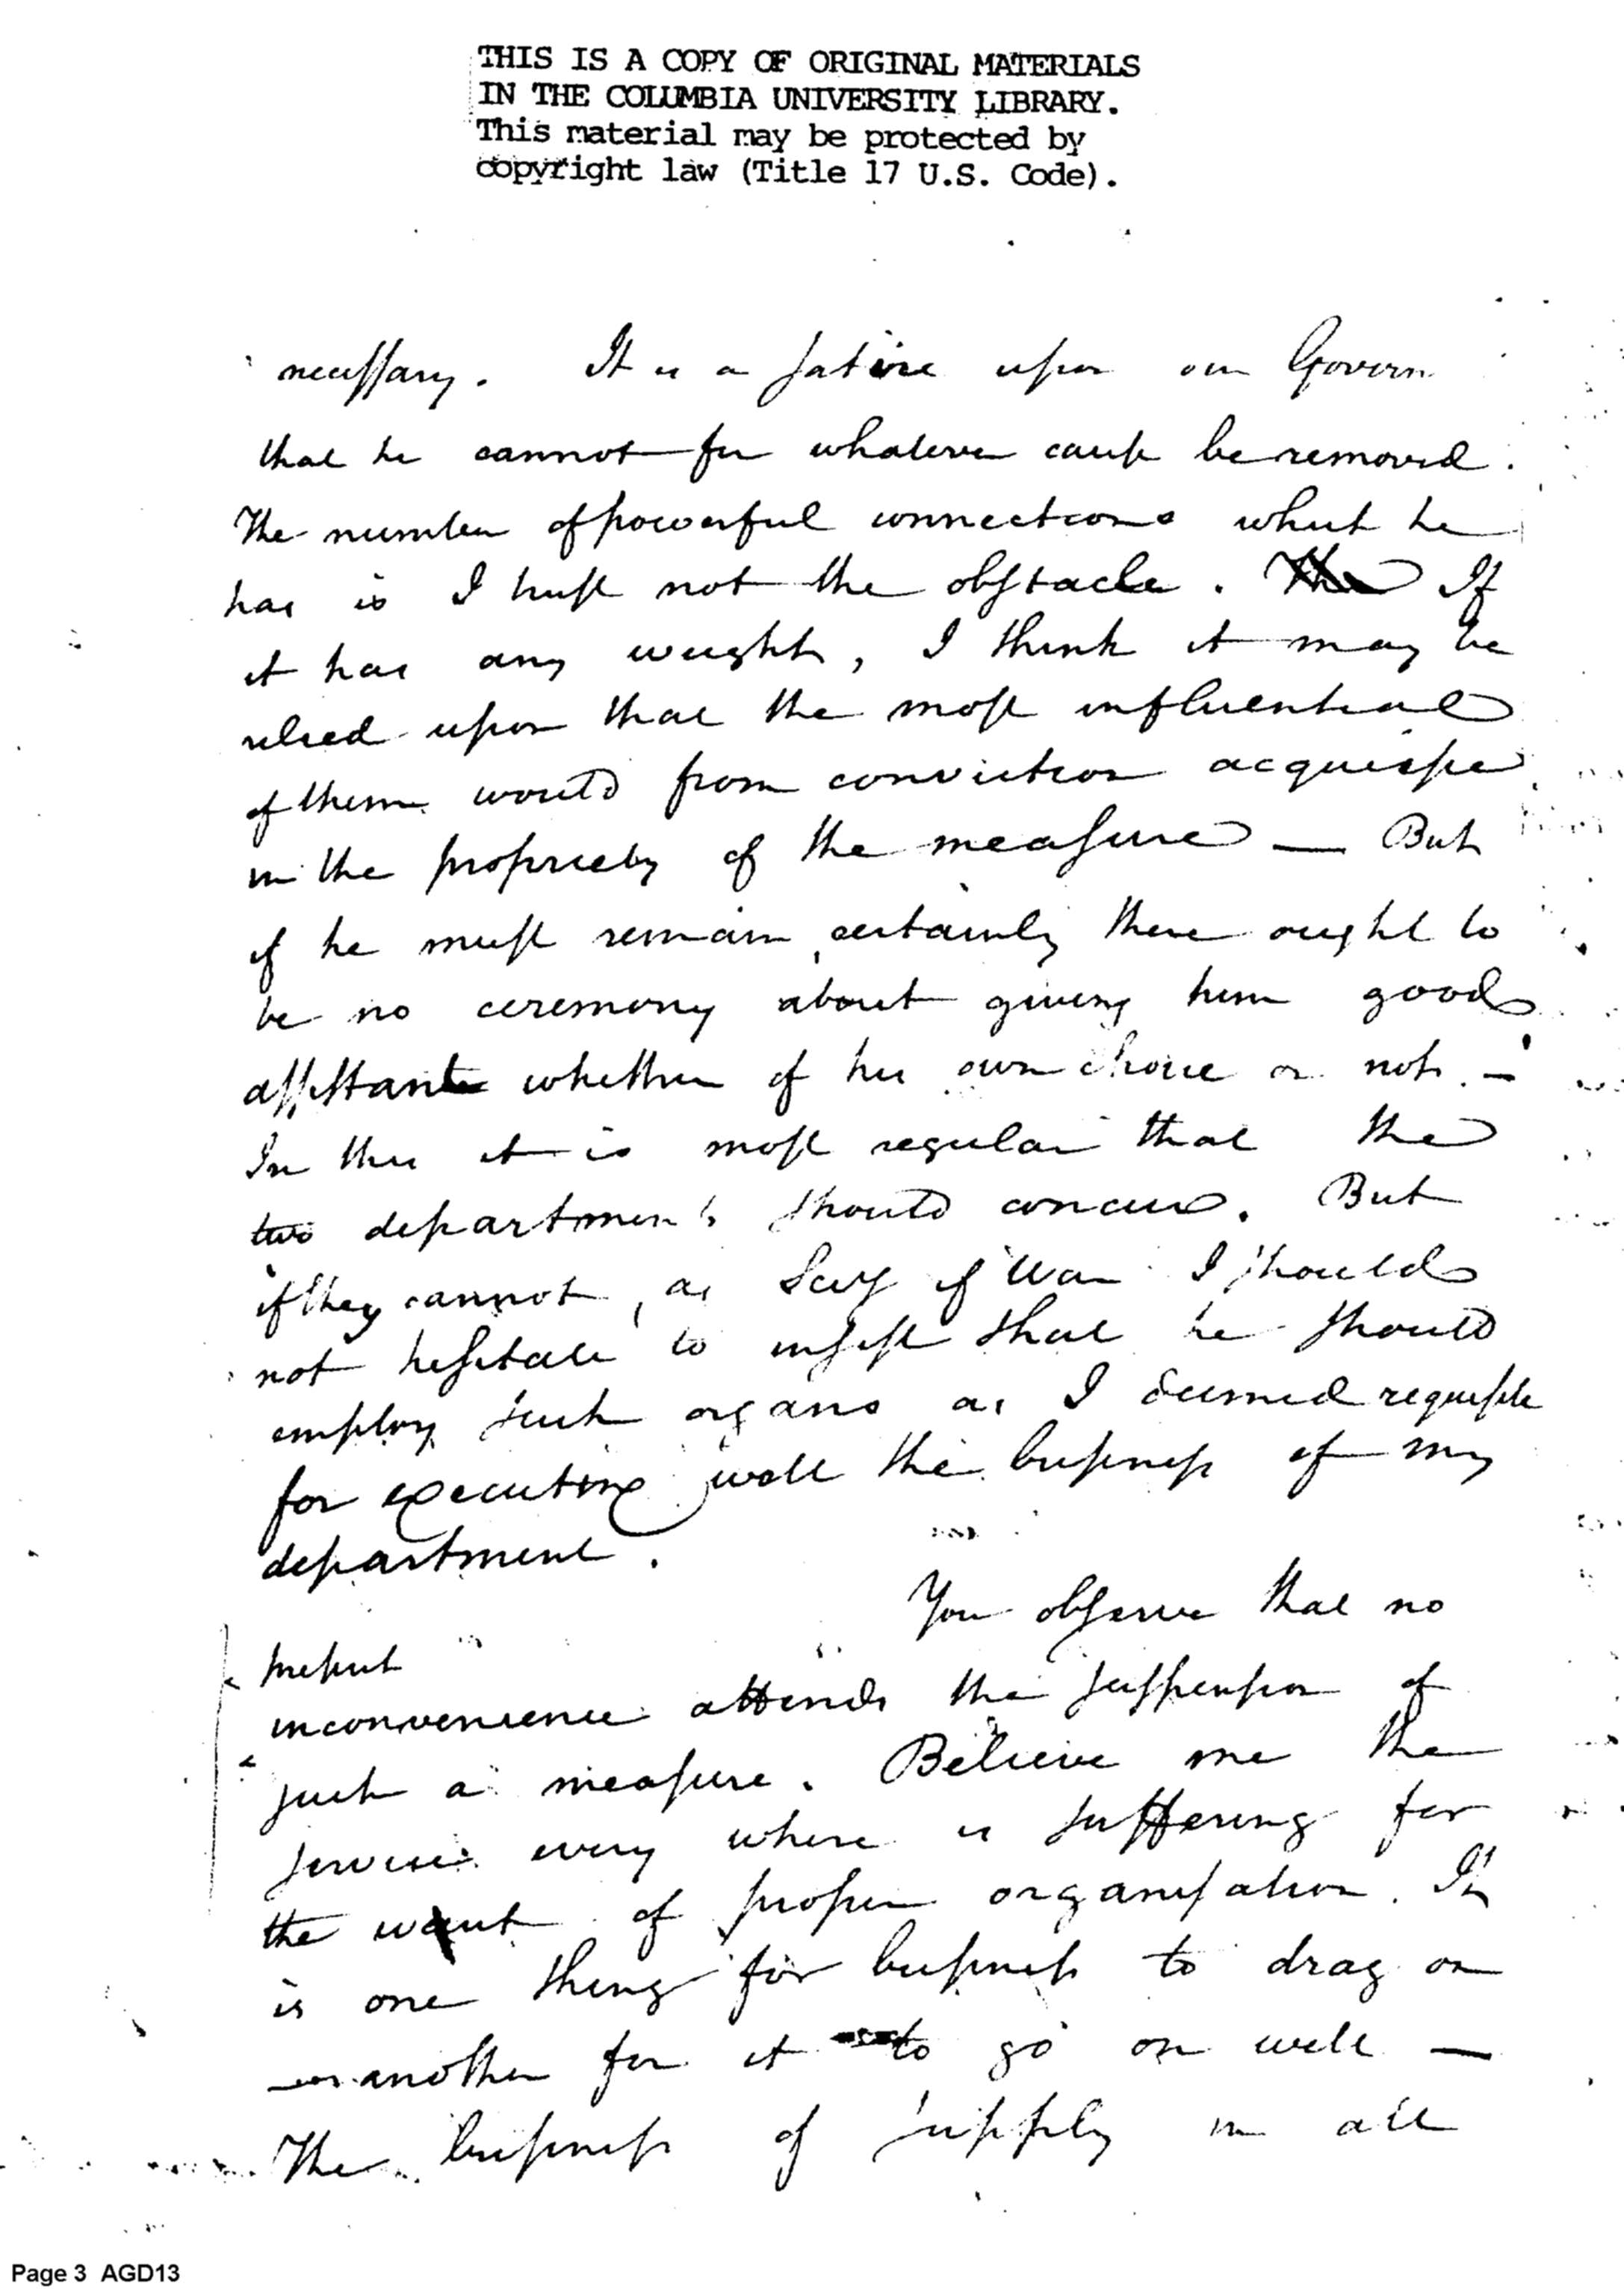 THIS IS A COPY OF ORIGINAL MATERIALS
IN THE COLUMBIA UNIVERSITY LIBRARY.
This material may be protected by
copyright law (Title 17 U.S. Code).
necessary. It is a satire upon our Govern
that he cannot for whatever cause be removed.
The number of powerful connections which he
has is I trust not the obstacle. The If
it has any weight, I think it may be
relied upon that the most influential
of them would from conviction acquiesce
in the propriety of the measure — But
if he must remain, certainly there ought to
be no ceremony about giving him good
assistants whether of his own choice or not. —
In this it is most regular that the
two departments should concur. But
if they cannot, as Secy of War I should
not hesitate to insist that he should
employ such organs as I deemed requisite
for executing well the business of my
department.
You observe that no
present
inconvenience attends the suspension of
such a measure. Believe me the
service every where is suffering for
the want of proper organisation. It
is one thing for business to drag on
another for it to go on well —
The business of supply in all
Page 3 AGD13